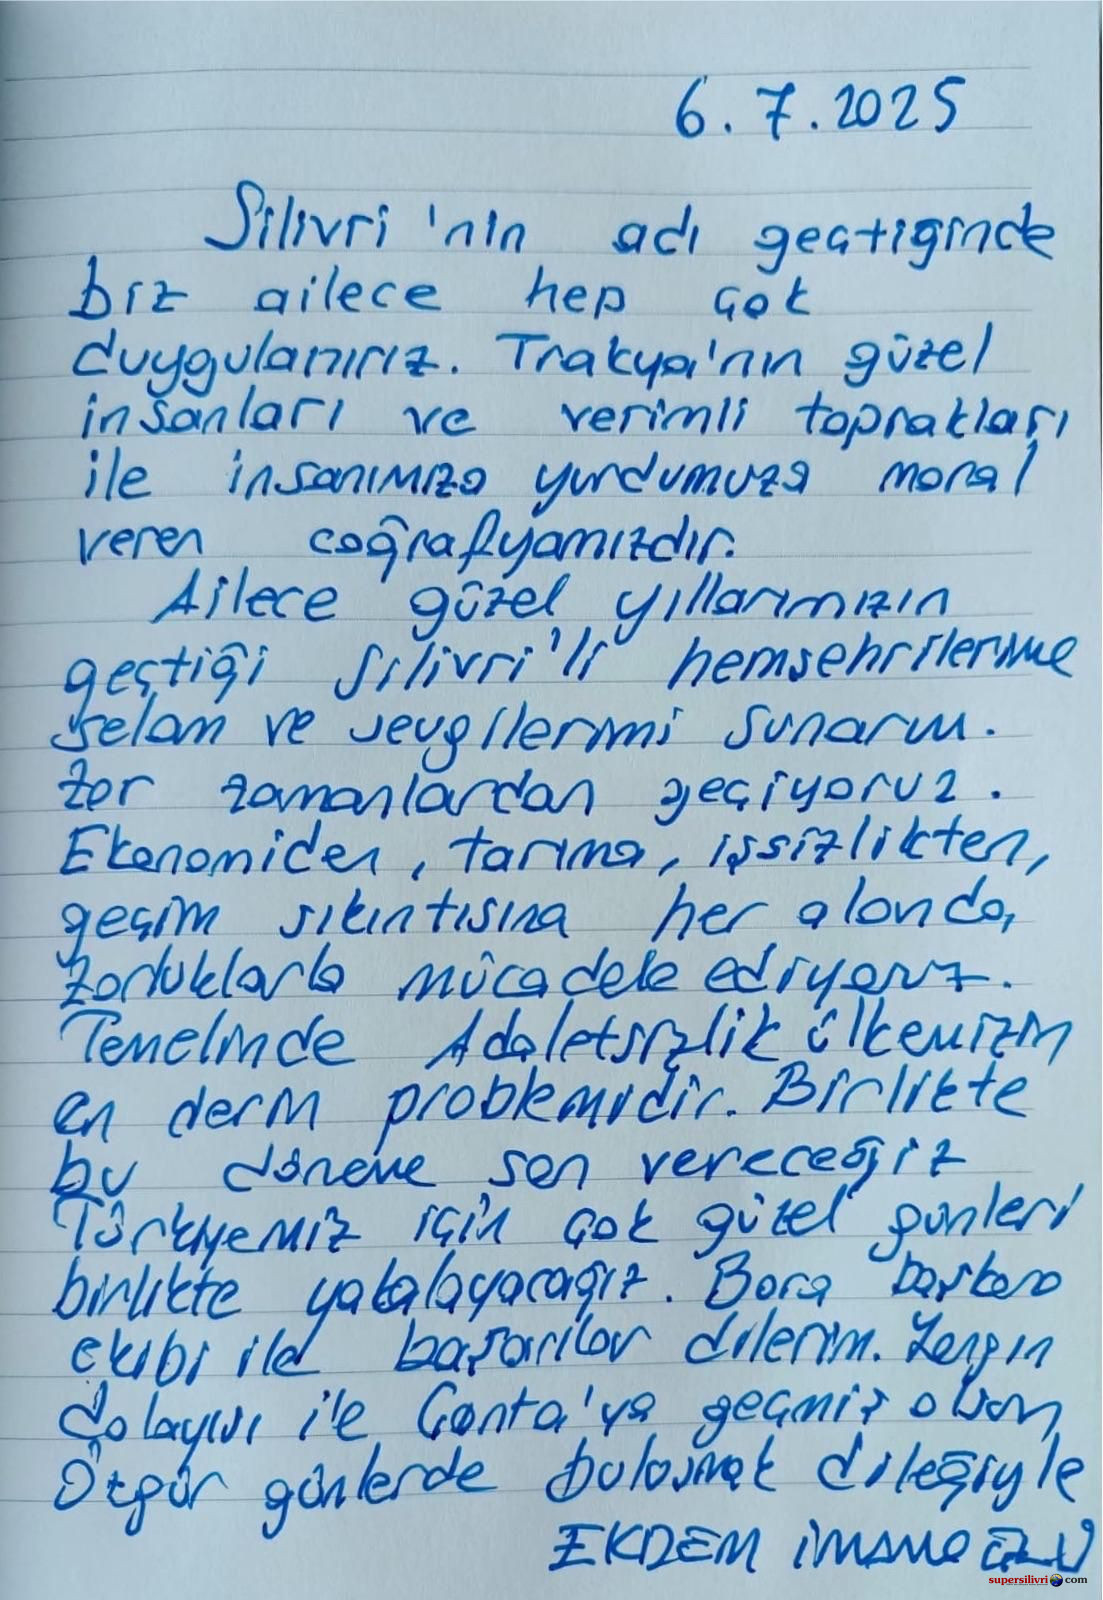 6.7.2025
Silivri'nin adı geçtiğinde
biz ailece hep çok
duygulanırız. Trakya'nın güzel
insanları ve verimli toprakları
ile insanımıza yurdumuza moral
veren coğrafyamızdır.
Ailece güzel yıllarımızın
geçtiği Silivri'li hemşehrilerime
selam ve sevgilerimi sunarım.
Zor zamanlardan geçiyoruz.
Ekonomiden, tarıma, işsizlikten,
geçim sıkıntısına her alanda,
zorluklarla mücadele ediyoruz.
Temelinde Adaletsizlik ülkemizin
en derin problemidir. Birlikte
bu döneme son vereceğiz
Türkiyemiz için çok güzel günleri
birlikte yakalayacağız. Bora başkana
ekibi ile başarılar dilerim. Yangın
dolayısı ile Çanta'ya geçmiş olsun,
Özgür günlerde buluşmak dileğiyle
EKREM İMAMOĞLU
supersilivri.com